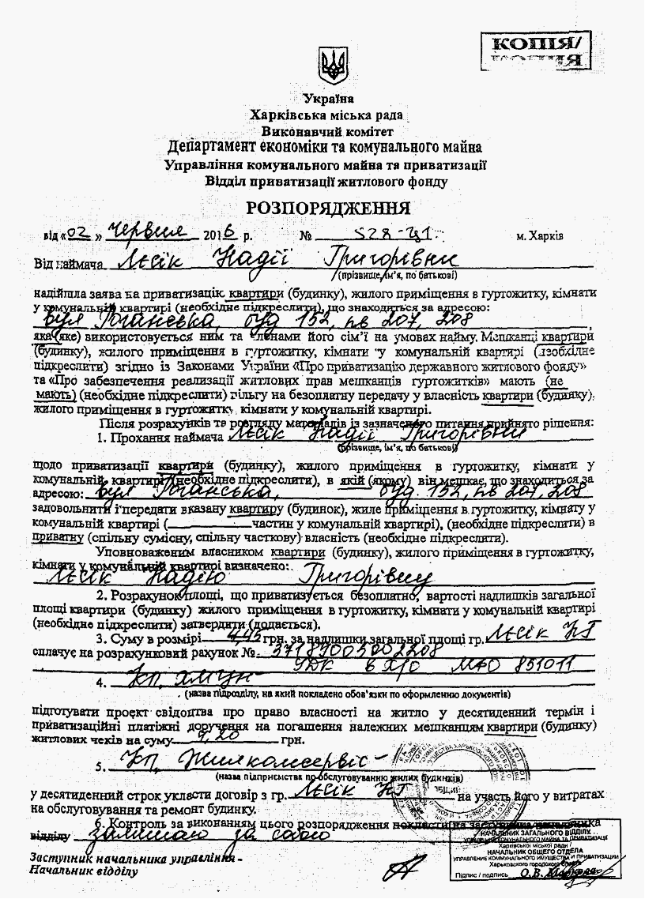 КОПІЯ/
КОПИЯ
Україна
Харківська міська рада
Виконавчий комітет
Департамент економіки та комунального майна
Управління комунального майна та приватизації
Відділ приватизації житлового фонду
РОЗПОРЯДЖЕННЯ
від «02» Червня 2016 р. № 528- м. Харків
Від наймача Лєсік Надії Григорівни
(прізвище, ім’я, по батькові)
надійшла заява на приватизацію квартири (будинку), жилого приміщення в гуртожитку, кімнати
у комунальній квартирі (необхідне підкреслити), що знаходиться за адресою:
вул Роганська, буд 152, кв 207, 208
яка (яке) використовується ним та членами його сім’ї на умовах найму. Мешканці квартири
(будинку), жилого приміщення в гуртожитку, кімнати у комунальній квартирі (необхідне
підкреслити) згідно із Законами України «Про приватизацію державного житлового фонду»
та «Про забезпечення реалізації житлових прав мешканців гуртожитків» мають (не
мають) (необхідне підкреслити) пільгу на безоплатну передачу у власність квартири (будинку),
жилого приміщення в гуртожитку, кімнати у комунальній квартирі.
Після розрахунків та розгляду матеріалів із зазначеного питання прийнято рішення:
1. Прохання наймача Лєсік Надії Григорівни
(прізвище, ім’я, по батькові)
щодо приватизації квартири (будинку), жилого приміщення в гуртожитку, кімнати у
комунальній квартирі (необхідне підкреслити), в якій (якому) він мешкає, що знаходиться за
адресою: вул Роганська, буд 152, кв 207, 208
задовольнити і передати вказану квартиру (будинок), жиле приміщення в гуртожитку, кімнату у
комунальній квартирі ( частин у комунальній квартирі), (необхідне підкреслити) в
приватну (спільну сумісну, спільну часткову) власність (необхідне підкреслити).
Уповноваженим власником квартири (будинку), жилого приміщення в гуртожитку,
кімнати у комунальній квартирі визначено:
Лєсік Надію Григорівну
2. Розрахунок площі, що приватизується безоплатно, вартості надлишків загальної
площі квартири (будинку) жилого приміщення в гуртожитку, кімнати у комунальній квартирі
(необхідне підкреслити) затвердити (додається).
3. Суму в розмірі грн. за надлишки загальної площі гр. Лєсік НГ
сплачує на розрахунковий рахунок №. 37189005002208
УДК в Х/О МФО 851011
4. КП
(назва підрозділу, на який покладено обов’язки по оформленню документів)
підготувати проект свідоцтва про право власності на житло у десятиденний термін і
приватизаційні платіжні доручення на погашення належних мешканцям квартири (будинку)
житлових чеків на суму 9,20 грн.
5. КП Жилкомсервіс
(назва підприємства по обслуговуванню жилих будинків)
у десятиденний строк укласти договір з гр. Лєсік НГ на участь його у витратах
на обслуговування та ремонт будинку.
6. Контроль за виконанням цього розпорядження покласти на заступника начальника
відділу залишаю за собою
Заступник начальника управління-
Начальник відділу
НАЧАЛЬНИК ЗАГАЛЬНОГО ВІДДІЛУ
УПРАВЛІННЯ КОМУНАЛЬНОГО МАЙНА ТА ПРИВАТИЗАЦІЇ
Харківської міської ради /
НАЧАЛЬНИК ОБЩЕГО ОТДЕЛА
УПРАВЛЕНИЯ КОММУНАЛЬНОГО ИМУЩЕСТВА И ПРИВАТИЗАЦИИ
Харьковского городского совета
Підпис / подпись О.В.